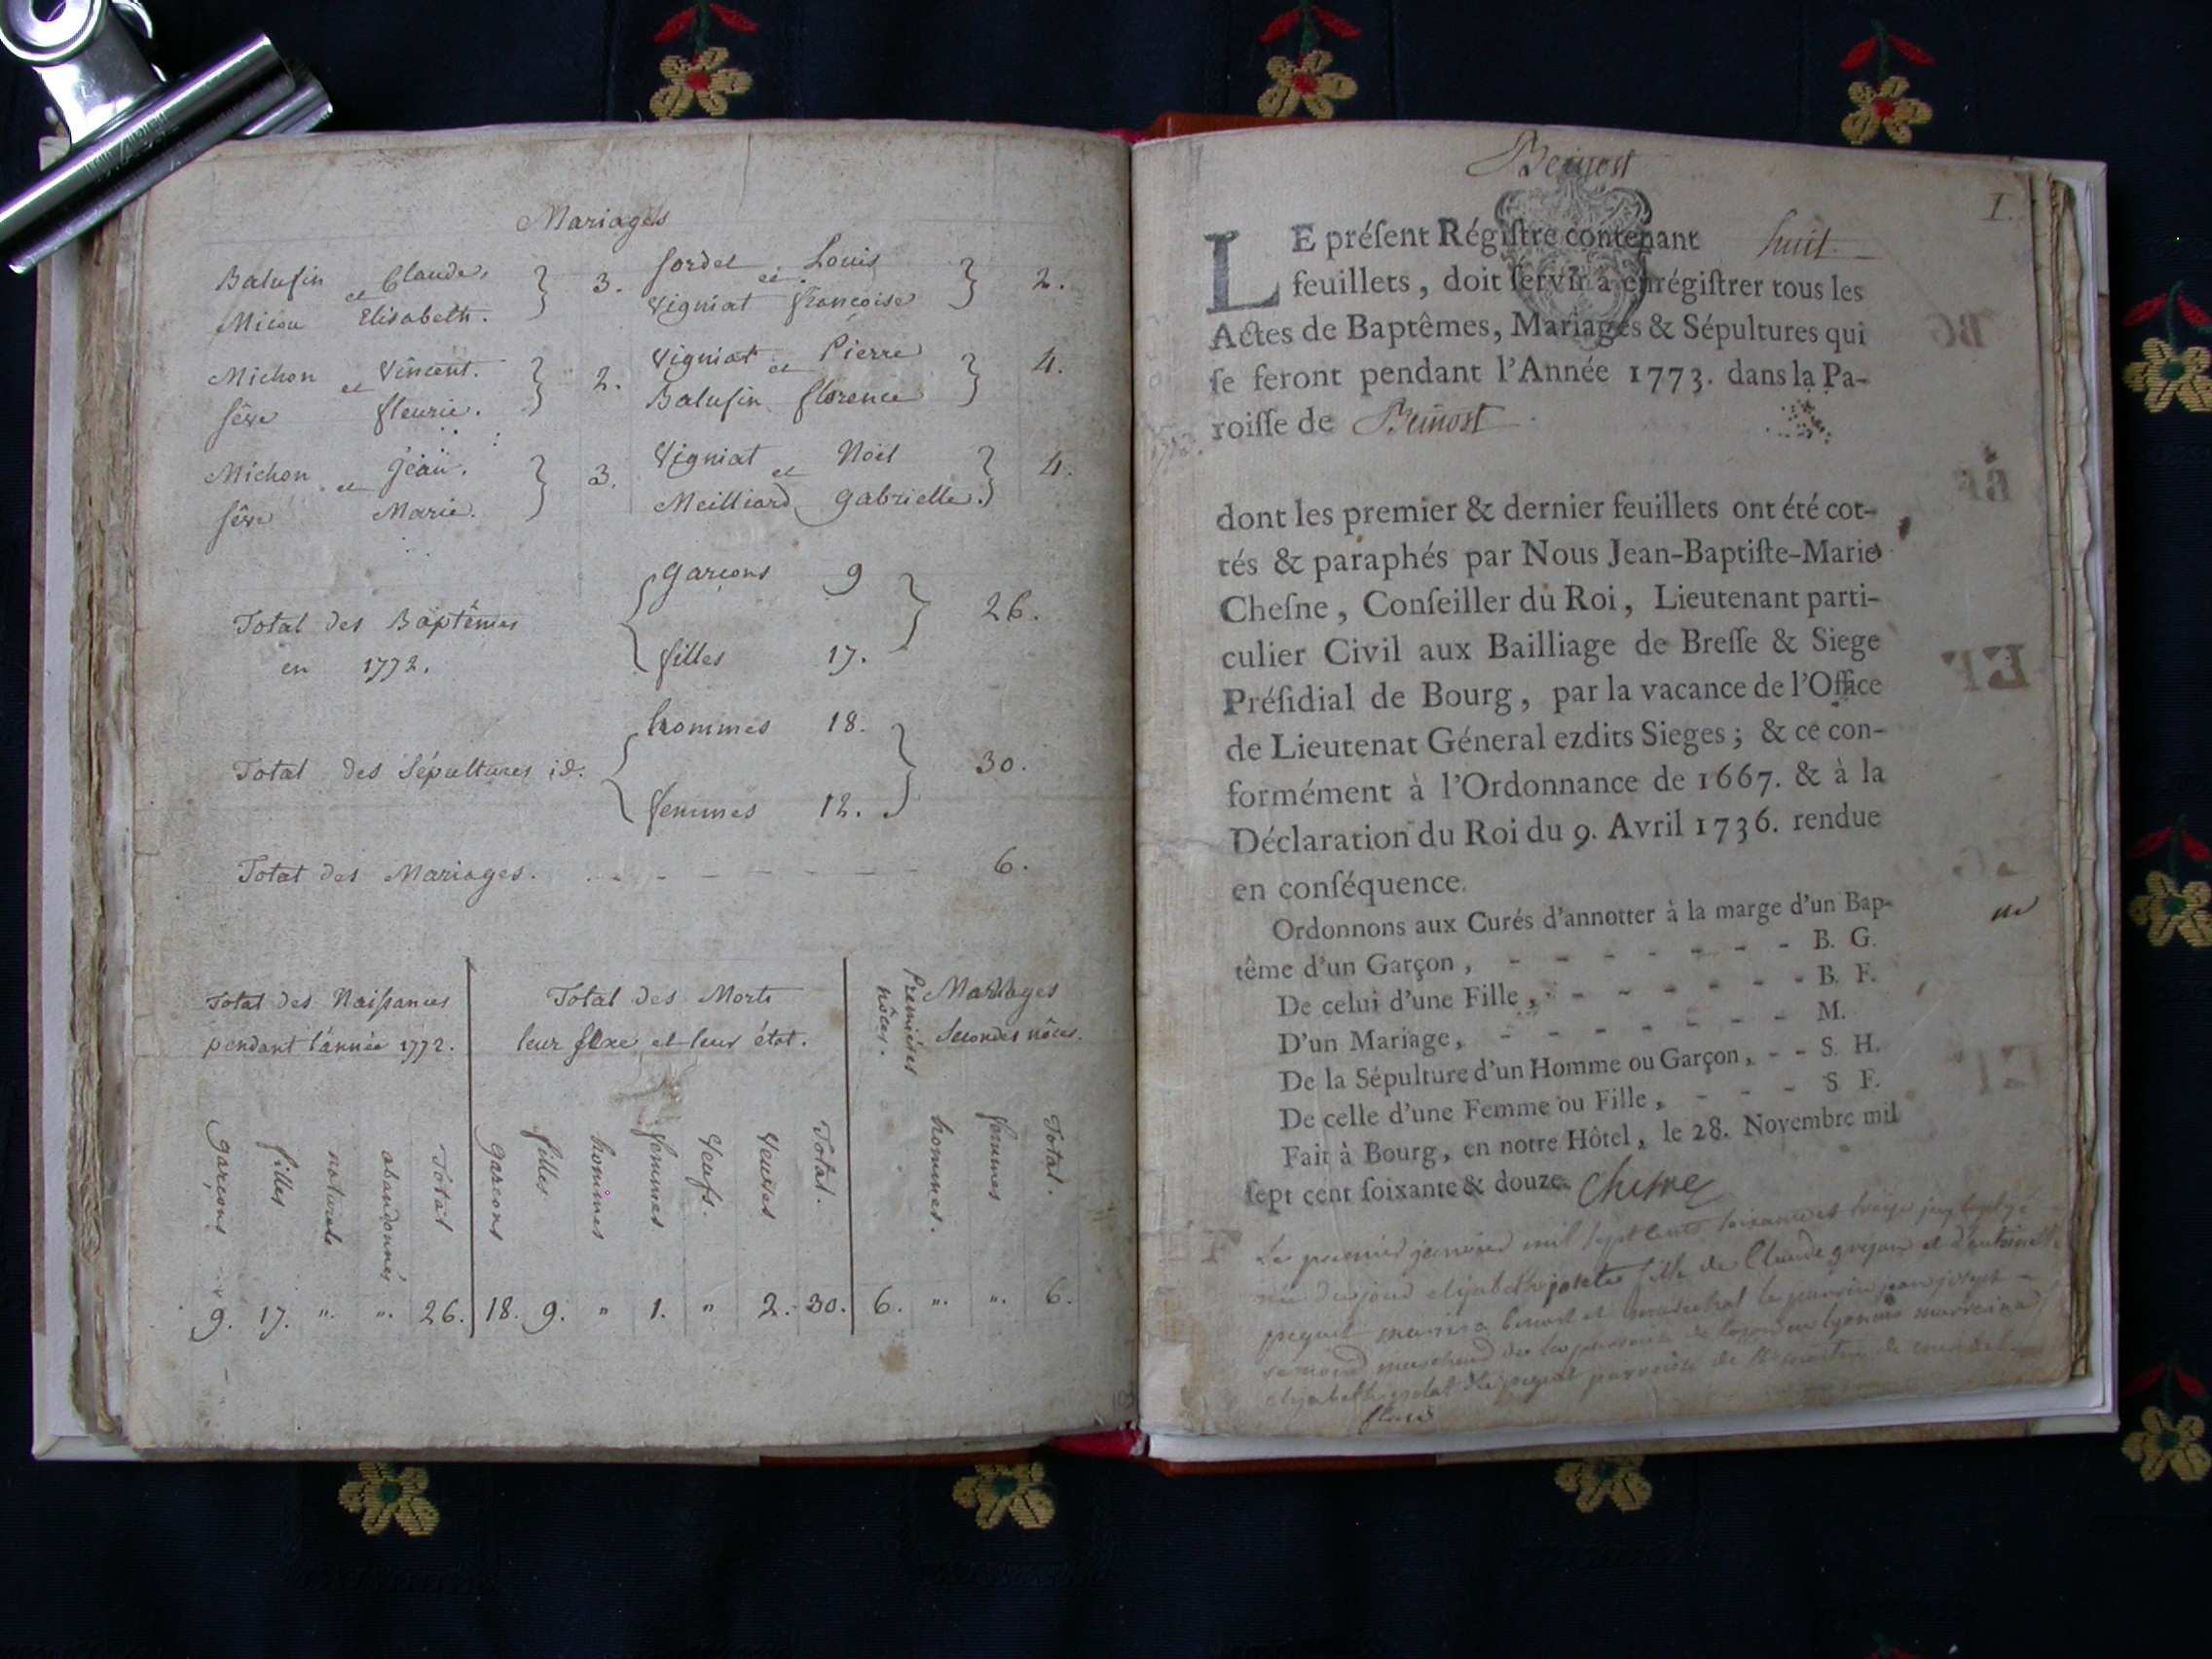 Mariages
Balufin et Claude } 3.
Micou Elisabeth.
Michon et Vincent. } 2.
sève fleurie.
Michon et Jean. } 3.
sève Marie.
Sordet et Louis } 2.
Vigniat françoise
Vigniat et Pierre } 4.
Balufin florence
Vigniat et Noël } 4.
Meilliard gabrielle.
Total des Baptêmes { garçons 9 } 26.
en 1772. filles 17.
Total des Sépultures id. { hommes 18. } 30.
femmes 12.
Total des Mariages. - - - - - - - 6.
Total des Naissances
pendant l'année 1772.
garçons filles naturels abandonnés Total
9. 17. " ". 26.
Total des Morts
leur sexe et leur état.
garçons filles hommes femmes Veufs. Veuves Total.
18. 9. " 1. " 2. 30.
Mariages
Premières nôces. Secondes nôces.
hommes. femmes Total.
6. ". ". 6.
Beinost
I.
LE préſent Régiſtre contenant huit.
feuillets, doit ſervir à enrégiſtrer tous les
Actes de Baptêmes, Mariages & Sépultures qui
ſe feront pendant l'Année 1773. dans la Pa-
roiſſe de Beinost
dont les premier & dernier feuillets ont été cot-
tés & paraphés par Nous Jean-Baptiſte-Marie
Cheſne, Conſeiller du Roi, Lieutenant parti-
culier Civil aux Bailliage de Breſſe & Siege
Préſidial de Bourg, par la vacance de l'Office
de Lieutenat Géneral ezdits Sieges; & ce con-
formément à l'Ordonnance de 1667. & à la
Déclaration du Roi du 9. Avril 1736. rendue
en conſéquence.
Ordonnons aux Curés d'annotter à la marge d'un Bap-
tême d'un Garçon, - - - - - - B. G.
De celui d'une Fille, - - - - - - B. F.
D'un Mariage, - - - - - - - M.
De la Sépulture d'un Homme ou Garçon, - - S. H.
De celle d'une Femme ou Fille, - - - S F.
Fait à Bourg, en notre Hôtel, le 28. Novembre mil
ſept cent ſoixante & douze. Chesne
Le premier janvier mil sept cents soixante et treize j'ay baptisé
née du jour elisabeth josete fille de Claude et d'antoinette